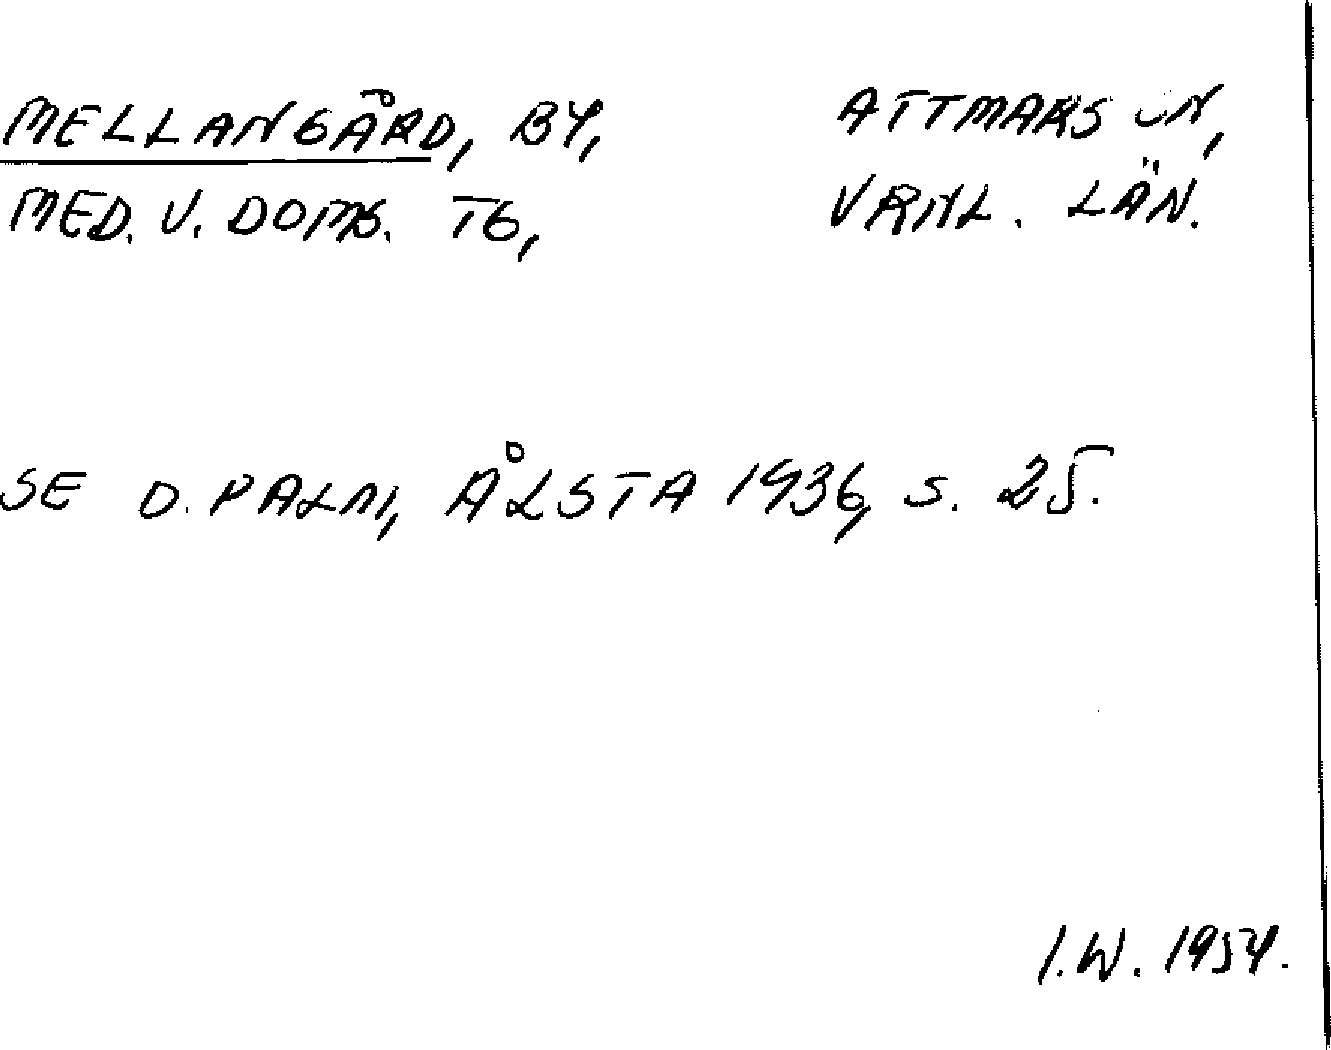 MELLANGÅRD, BY, ATTMARS SN,
MED. V. DOMS. TG, VRNL. LÄN.
SE D. PALM, ÅLSTA 1936, S. 25.
I.W. 1954.